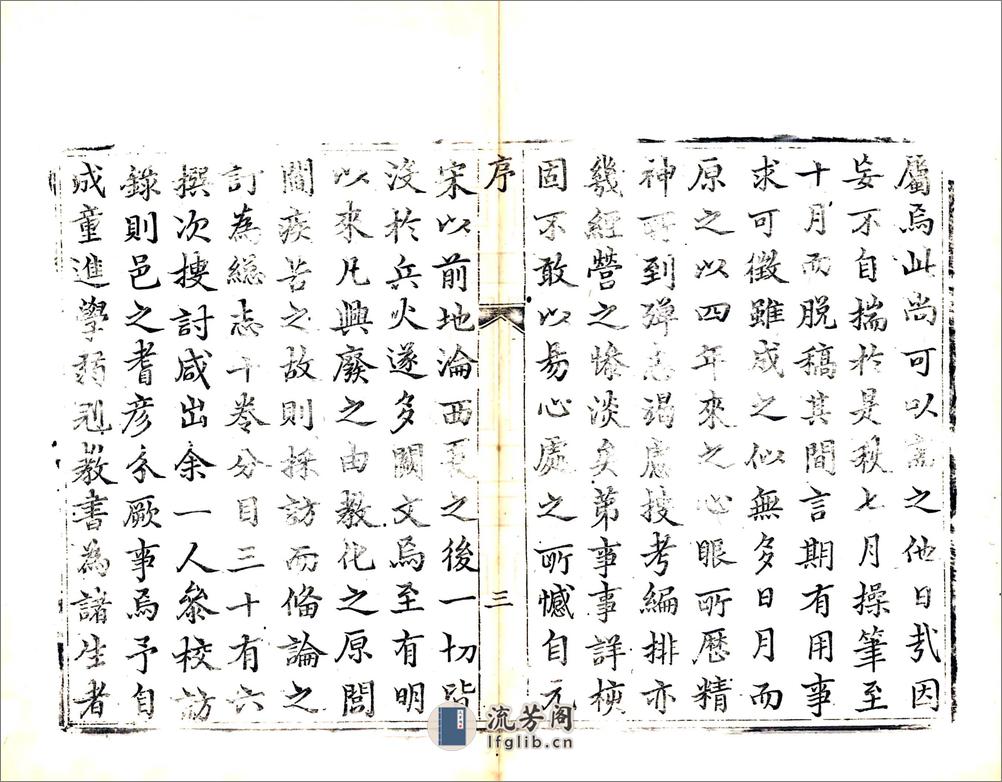 屬焉此尚可以需之他日哉因
妄不自揣於是秋七月操筆至
十月而脫稿其間言期有用事
求可徵雖成之似無多日月而
原之以四年來之心眼所歷精
神所到殫志竭慮搜考編排亦
幾經營之慘淡矣第事事詳核
固不敢以易心處之所憾自元
序 三
宋以前地淪西夏之後一切皆
沒於兵火遂多闕文焉至有明
以來凡興廢之由教化之原閭
閻疾苦之故則採訪而備論之
訂為總志十卷分目三十有六
撰次搜討咸出余一人叅校訪
錄則邑之耆彥分厥事焉予自
成童進學
教書為諸生者
流芳阁
lfglib.cn